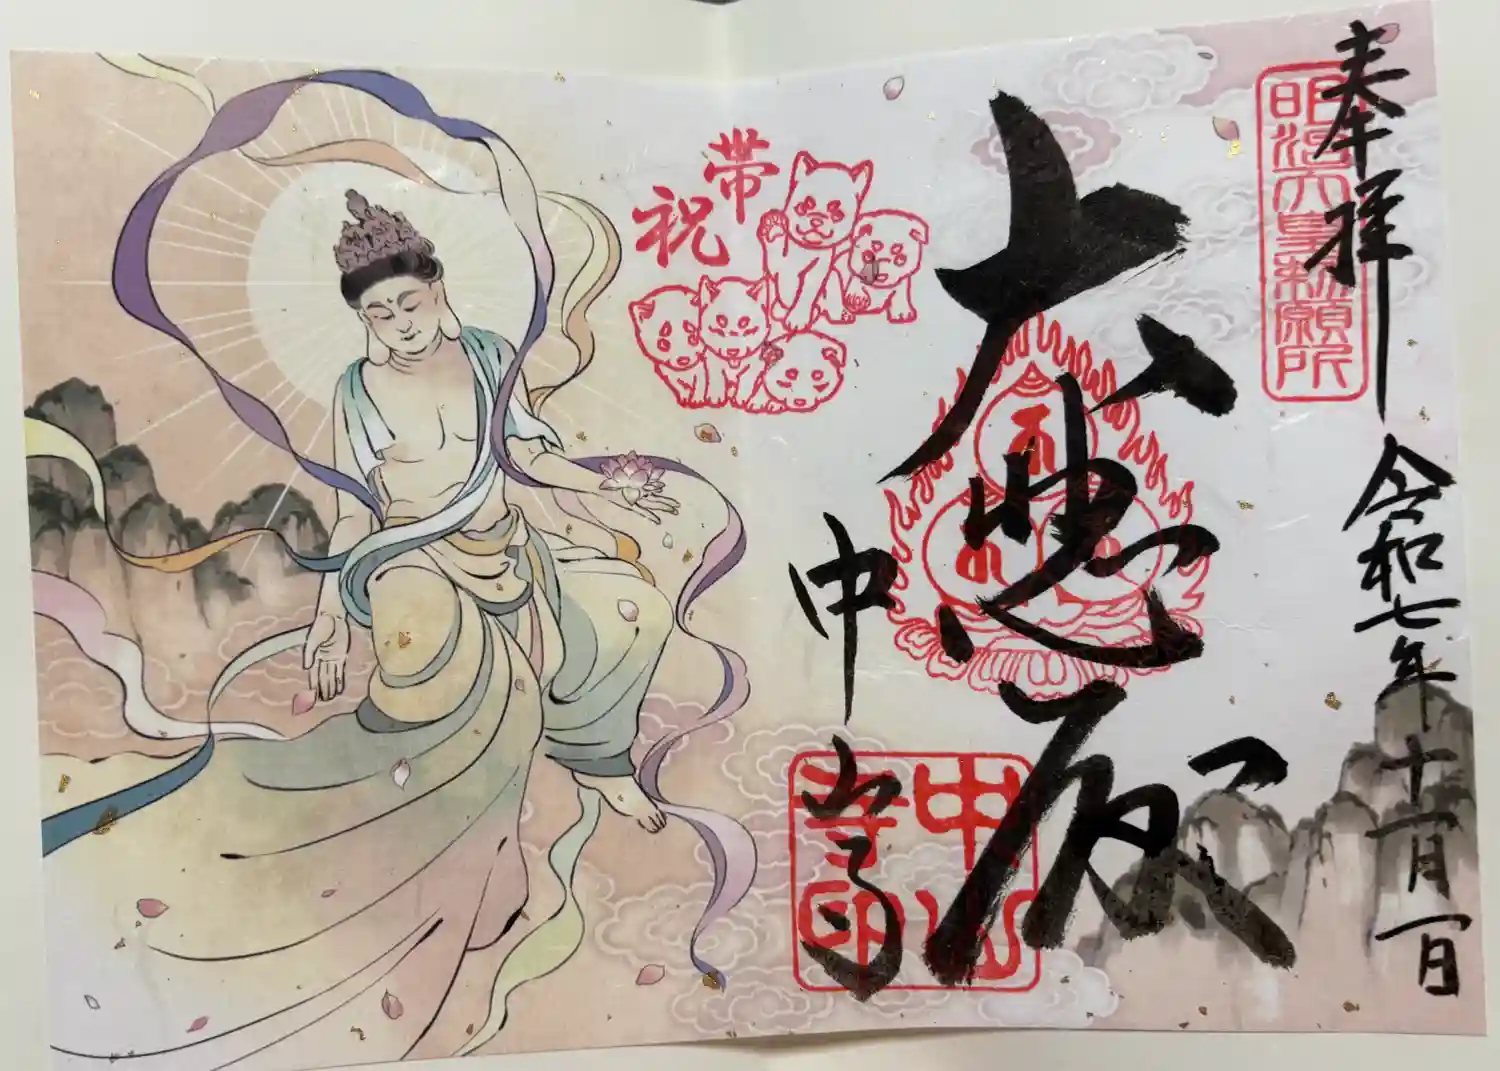 奉拝 令和七年十一月一日
明治天皇勅願所
大悲殿
中山寺
中山寺印
帯祝